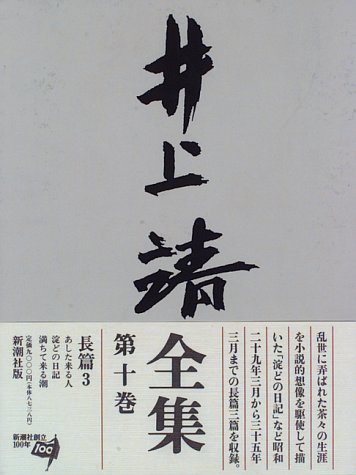 井上靖
乱世に弄ばれた茶々の生涯
を小説的想像を駆使して描
いた「淀どの日記」など昭和
二十九年三月から三十五年
三月までの長篇三篇を収録。
全集
第十巻
長篇3
あした来る人
淀どの日記
満ちて来る潮
新潮社版
定価九〇〇〇円(本体八七三八円)
新潮社創立
100年
100